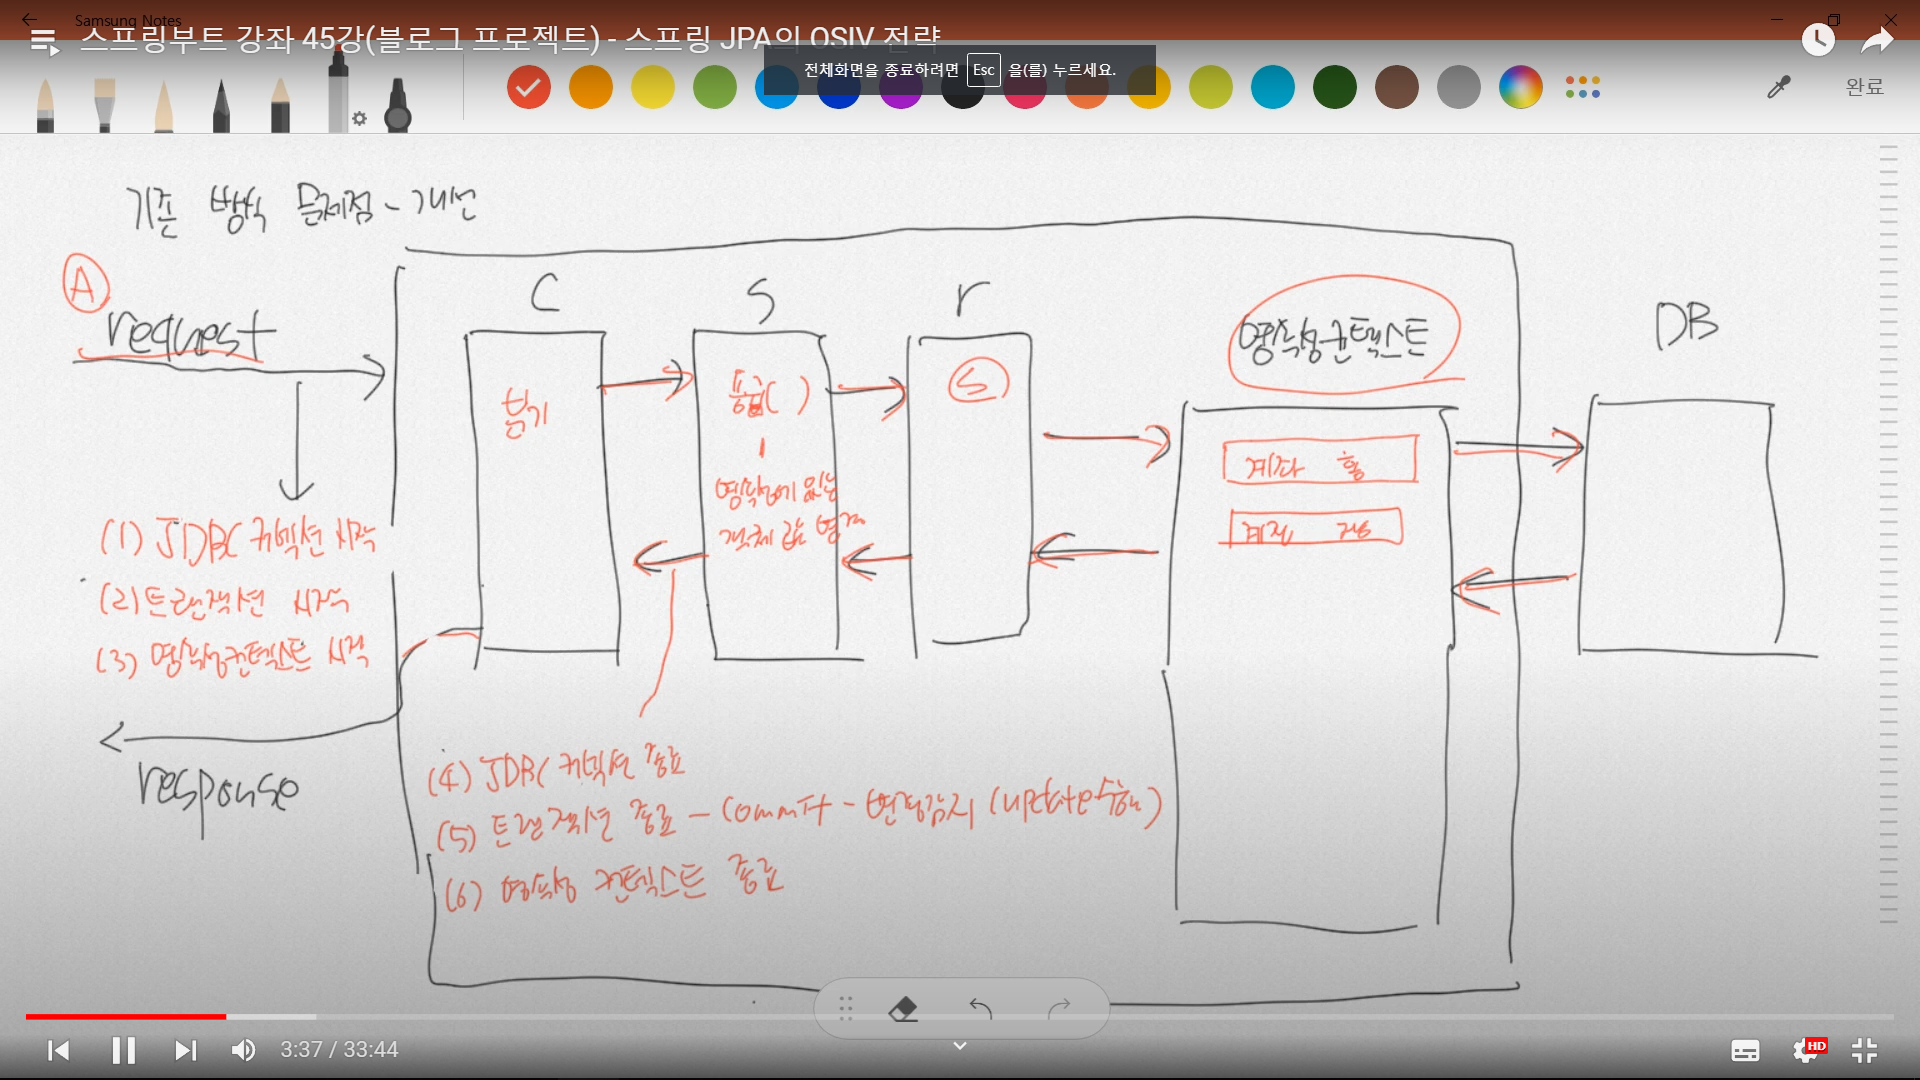 Samsung Notes
스프링부트 강좌 45강(블로그 프로젝트) - 스프링 JPA의 OSIV 전략
전체화면을 종료하려면 Esc 을(를) 누르세요.
완료
기존 방식 문제점 - 개선
A
request
C
S
r
영속성컨텍스트
DB
붙기
송금( )
S
계좌 홍
영속성에 있는
객체 값 변경
(1) JDBC 커넥션 시작
(2) 트랜잭션 시작
(3) 영속성컨텍스트 시작
response
(4) JDBC 커넥션 종료
(5) 트랜잭션 종료 - Commit - 변경감지 (update수행)
(6) 영속성 컨텍스트 종료
3:37 / 33:44
HD